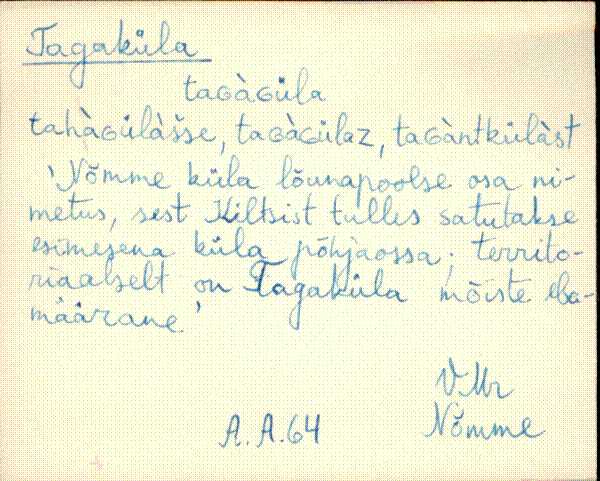 Tagaküla
taɢàɢüla
tahàɢülàšse, taɢàɢülaz, taɢàntkülàst
'Nõmme küla lõunapoolse osa ni-
metus, sest Kiltsist tulles satutakse
esimesena küla põhjaossa; territo-
riaalselt on Tagaküla mõiste eba-
määrane.'
V-Mr
A.A.64 Nõmme